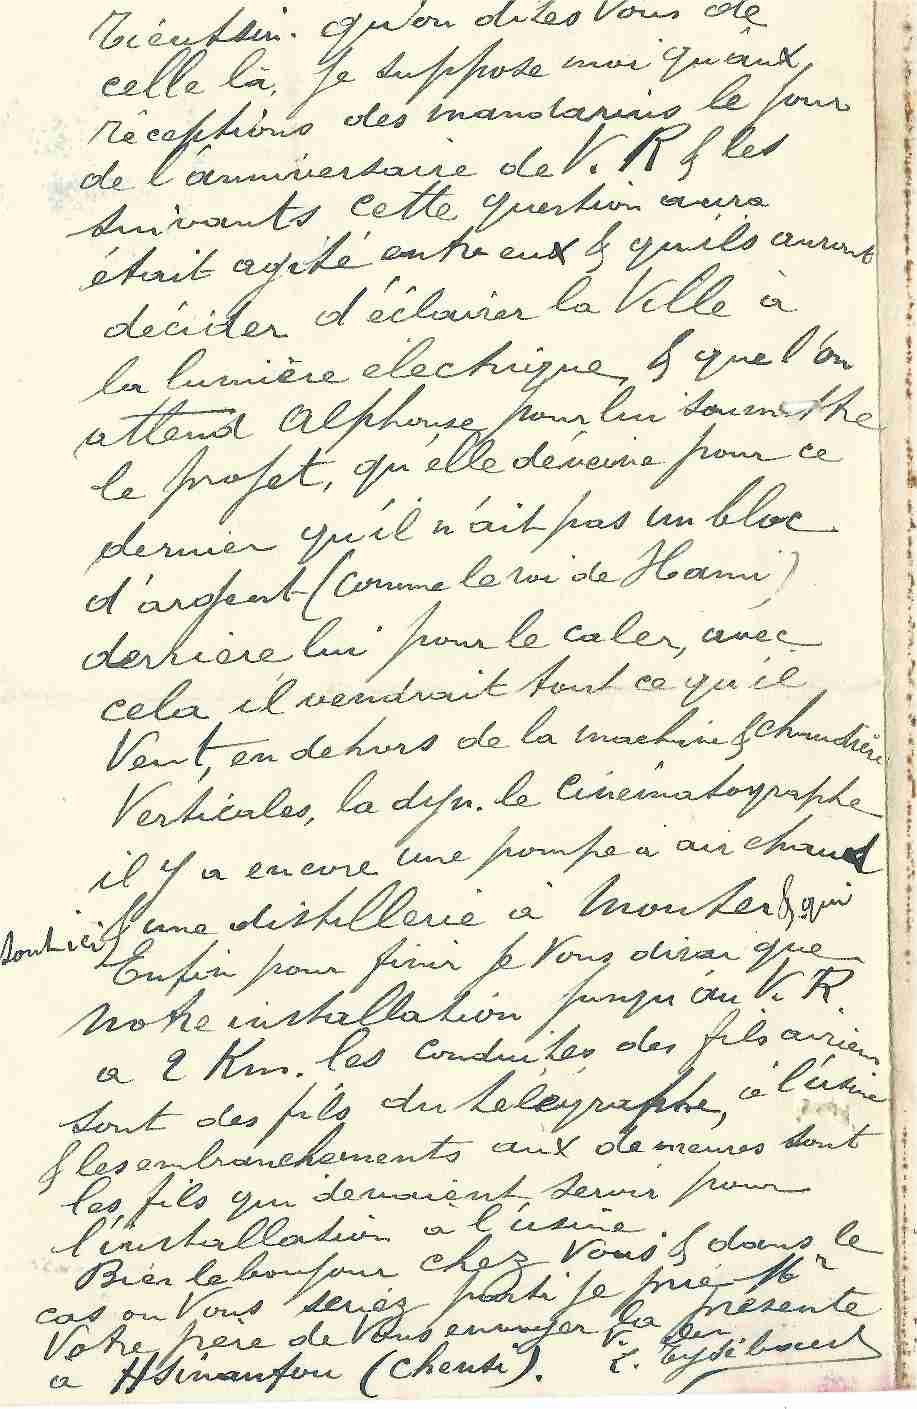 Tientsin. qu'on dites Vous de
celle là, je suppose moi qu'aux
réceptions des mandarins le jour
de l'anniversaire de V. R & les
suivants cette question aura
était agité entre eux & qu'ils auront
décider d'éclairer la Ville à
la lumière électrique, & que l'on
attend Alphonse pour lui soumettre
le projet, qu'elle déveine pour ce
dernier qu'il n'ait pas un bloc
d'argent (comme le roi de Hami)
derrière lui pour le caler, avec
cela il vendrait tout ce qu'il
Veut, en dehors de la machine & chaudière
Verticales, la dyn. le Cinématographe
il y a encore une pompe à air chaud
& une distillerie à Monter & qui
sont ici
Enfin pour finir je Vous dirai que
Notre installation jusqu'au V. R
a 2 Km. les conduites des fils airiens
sont des fils du télégraphe, à l'usine
& les embranchements aux demeures sont
les fils qui devaient servir pour
l'installation à l'usine
Bien le bonjour chez Vous & dans le
cas ou Vous seriez parti je prie Mr
Votre père de Vous envoyer la présente
à Hsinanfou (Chensi).